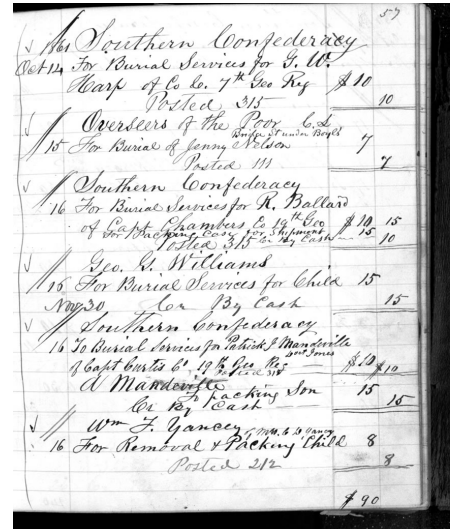 57
1861 Southern Confederacy
Oct 14 For Burial Services for G. W.
Harp of Co G. 7th Geo Reg $10
Posted 315 10
Overseers of the Poor C. L
Bridge St under Boyls
15 For Burial of Jenny Nelson 7
Posted 111 7
Southern Confederacy
16 For Burial Services for R. Ballard
of Capt Chambers Co 19th Geo $10 15
For Packing Case for Shipment 15
Posted 315 Cr By Cash 10
Geo. G. Williams
16 For Burial Services for Child 15
Nov 30 Cr By Cash 15
Southern Confederacy
16 To Burial Services for Patrick J Mandeville
of Capt Curtis Co 19th Geo Reg $10
Posted 315 $10
A Mandeville
To packing Son 15
Cr By Cash 15
Wm F. Yancey
16 For Removal & Packing Child 8
Posted 212 8
$ 90